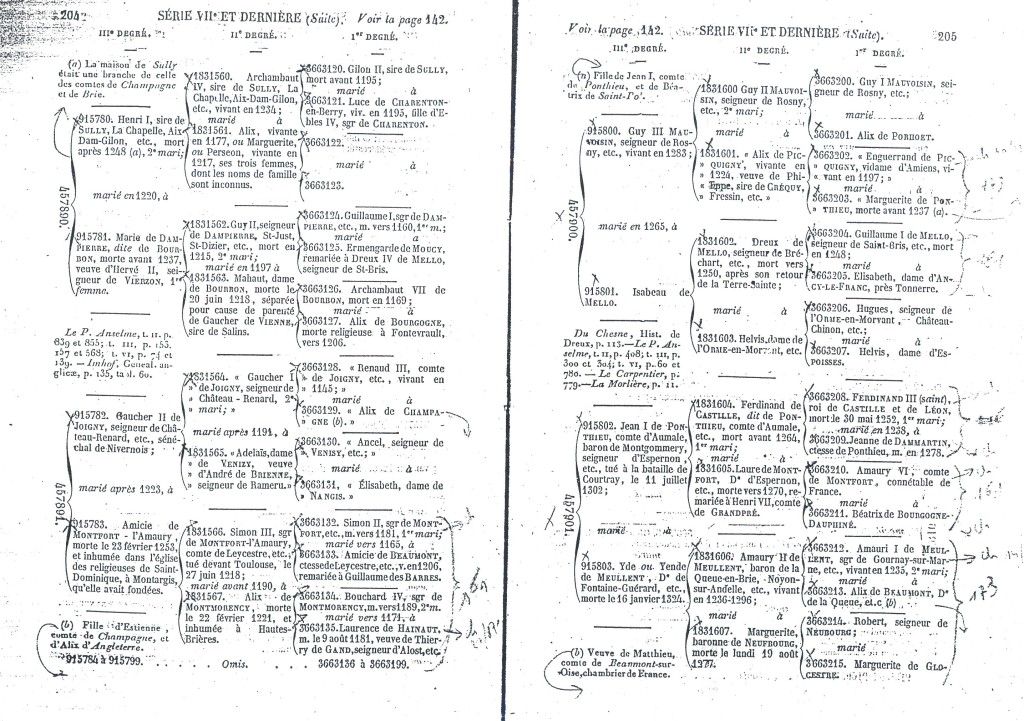 204
SÉRIE VIIe ET DERNIÈRE (Suite). Voir la page 142.
IIIe DEGRÉ.
IIe DEGRÉ.
1er DEGRÉ.
(a) La maison de Sully
était une branche de celle
des comtes de Champagne
et de Brie.
915780. Henri I, sire de
SULLY, La Chapelle, Aix-
Dam-Gilon, etc., mort
après 1248 (a), 2e mari;
marié en 1220, à
457890.
915781. Marie de DAM-
PIERRE, dite de BOUR-
BON, morte avant 1237,
veuve d'Hervé II, sei-
gneur de VIERZON, 1re
femme.
Le P. Anselme, t. II, p.
859 et 855; t. III, p. 155,
157 et 568; t. VI, p. 74 et
159. — Imhof, Geneal. an-
glicæ, p. 135, tabl. 60.
915782. Gaucher II de
JOIGNY, seigneur de Châ-
teau-Renard, etc., séné-
chal de Nivernois;
marié après 1223, à
457891.
915783. Amicie de
MONTFORT - l'Amaury,
morte le 23 février 1253,
et inhumée dans l'église
des religieuses de Saint-
Dominique, à Montargis,
qu'elle avait fondées.
(b) Fille d'Estienne,
comte de Champagne, et
d'Alix d'Angleterre.
915784 à 915799.
1831560. Archambaut
IV, sire de SULLY, La
Chapelle, Aix-Dam-Gilon,
etc., vivant en 1234;
marié à
1831561. Alix, vivante
en 1177, ou Marguerite,
ou Perseon, vivante en
1217, ses trois femmes,
dont les noms de famille
sont inconnus.
1831562. Guy II, seigneur
de DAMPIERRE, St-Just,
St-Dizier, etc., mort en
1215, 2e mari;
marié en 1197 à
1831563. Mahaut, dame
de BOURBON, morte le
20 juin 1218, séparée
pour cause de parenté
de Gaucher de VIENNE,
sire de Salins.
1831564. « Gaucher I
» de JOIGNY, seigneur de
» Château - Renard, 2e
» mari; »
marié après 1191, à
1831565. « Adelaïs, dame
» de VENIZY, veuve
» d'André de BRIENNE,
» seigneur de Rameru. »
1831566. Simon III, sgr
de MONTFORT-l'Amaury,
comte de Leycestre, etc.,
tué devant Toulouse, le
27 juin 1218;
marié avant 1190, à
1831567. Alix de
MONTMORENCY, morte
le 22 février 1221, et
inhumée à Hautes-
Brières.
Omis.
3663120. Gilon II, sire de SULLY,
mort avant 1195;
marié à
3663121. Luce de CHARENTON-
en-Berry, viv. en 1195, fille d'E-
bles IV, sgr de CHARENTON.
3663122.
marié à
3663123.
3663124. Guillaume I, sgr de DAM-
PIERRE, etc., m. vers 1160, 1er m.;
marié à
3663125. Ermengarde de MOUCY,
remariée à Dreux IV de MELLO,
seigneur de St-Bris.
3663126. Archambaut VII de
BOURBON, mort en 1169;
marié à
3663127. Alix de BOURGOGNE,
morte religieuse à Fontevrault,
vers 1206.
3663128. « Renaud III, comte
» de JOIGNY, etc., vivant en
» 1145; »
marié à
3663129. « Alix de CHAMPA-
» GNE (b). »
3663130. « Ancel, seigneur de
» VENISY, etc.; »
marié à
3663131. « Élisabeth, dame de
» NANGIS. »
3663132. Simon II, sgr de MONT-
FORT, etc., m. vers 1181, 1er mari;
marié vers 1165, à
3663133. Amicie de BEAUMONT,
ctesse de Leycestre, etc., v. en 1206,
remariée à Guillaume des BARRES.
3663134. Bouchard IV, sgr de
MONTMORENCY, m. vers 1189, 2e m.
marié vers 1171, à
3663135. Laurence de HAINAUT,
m. le 9 août 1181, veuve de Thier-
ry de GAND, seigneur d'Alost, etc.
3663136 à 3663199.
Voir la page 142.
SÉRIE VIIe ET DERNIÈRE (Suite).
205
IIIe DEGRÉ.
IIe DEGRÉ.
1er DEGRÉ.
(a) Fille de Jean I, comte
de Ponthieu, et de Béa-
trix de Saint-Pol.
915800. Guy III MAU-
VOISIN, seigneur de Ros-
ny, etc., vivant en 1283;
marié en 1265, à
457900.
915801. Isabeau de
MELLO.
Du Chesne, Hist. de
Dreux, p. 113. — Le P. An-
selme, t. II, p. 408; t. III, p.
300 et 304; t. VI, p. 60 et
780. — Le Carpentier, p.
779. — La Morlière, p. 11.
915802. Jean I de PON-
THIEU, comte d'Aumale,
baron de Montgommery,
seigneur d'Espernon,
etc., tué à la bataille de
Courtray, le 11 juillet
1302;
marié à
457901.
915803. Yde ou Yende
de MEULLENT, De de
Fontaine-Guérard, etc.,
morte le 16 janvier 1324.
(b) Veuve de Matthieu,
comte de Beaumont-sur-
Oise, chambrier de France.
1831600 Guy II MAUVOI-
SIN, seigneur de Rosny,
etc., 2e mari;
marié à
1831601. « Alix de PIC-
» QUIGNY, vivante en
» 1224, veuve de Phi-
» lippe, sire de CRÉQUY,
» Fressin, etc. »
1831602. Dreux de
MELLO, seigneur de Bré-
chart, etc., mort vers
1250, après son retour
de la Terre-Sainte;
marié à
1831603. Helvis, dame de
l'ORME-en-Morvant, etc.
1831604. Ferdinand de
CASTILLE, dit de PON-
THIEU, comte d'Aumale,
etc., mort avant 1264,
1er mari;
marié à
1831605. Laure de MONT-
FORT, De d'Espernon,
etc., morte vers 1270, re-
mariée à Henri VII, comte
de GRANDPRÉ.
1831606. Amaury II de
MEULLENT, baron de la
Queue-en-Brie, Noyon-
sur-Andelle, etc., vivant
en 1236-1296;
marié à
1831607. Marguerite,
baronne de NEUFBOURG,
morte le lundi 19 août
1277.
3663200. Guy I MAUVOISIN, sei-
gneur de Rosny, etc.;
marié à
3663201. Alix de PORHOET.
3663202. « Enguerrand de PIC-
» QUIGNY, vidame d'Amiens, vi-
» vant en 1197; »
marié à
3663203. « Marguerite de PON-
» THIEU, morte avant 1237 (a).
3663204. Guillaume I de MELLO,
seigneur de Saint-Bris, etc., mort
en 1248;
marié à
3663205. Elisabeth, dame d'AN-
CY-LE-FRANC, près Tonnerre.
3663206. Hugues, seigneur de
l'ORME-en-Morvant, Château-
Chinon, etc.;
marié à
3663207. Helvis, dame d'ES-
POISSES.
3663208. FERDINAND III (saint),
roi de CASTILLE et de LÉON,
mort le 30 mai 1252, 1er mari;
marié en 1238, à
3663209. Jeanne de DAMMARTIN,
ctesse de Ponthieu, m. en 1278.
3663210. Amaury VI, comte
de MONTFORT, connétable de
France.
marié à
3663211. Béatrix de BOURGOGNE-
DAUPHINÉ.
3663212. Amauri I de MEUL-
LENT, sgr de Gournay-sur-Mar-
ne, etc., vivant en 1235, 2e mari;
marié à
3663213. Alix de BEAUMONT, De
de la Queue, etc. (b)
3663214. Robert, seigneur de
NEUBOURG;
marié à
3663215. Marguerite de GLO-
CESTRE.
173